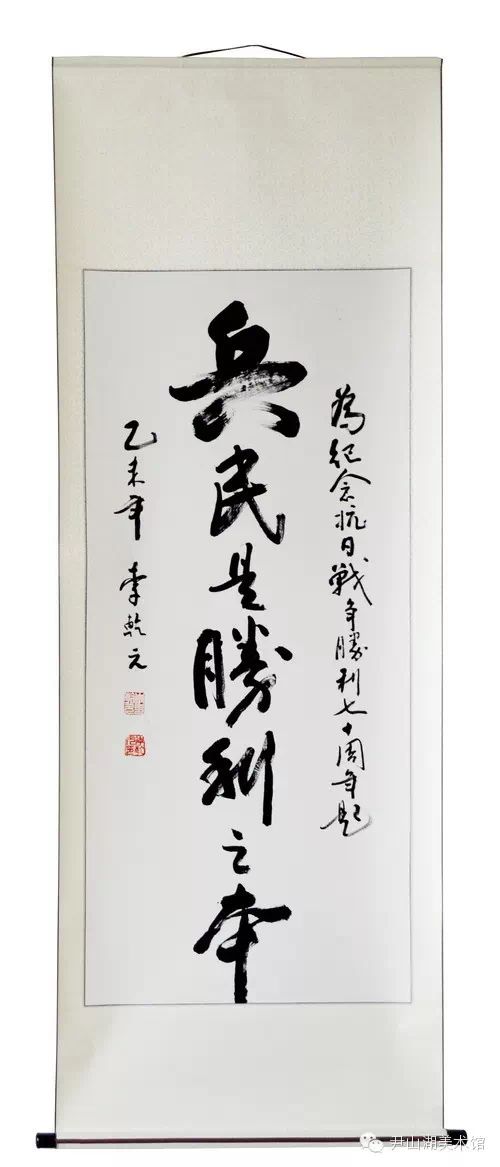 為紀念抗日戰争勝利七十周年題
兵民是勝利之本
乙未年 李乾元
尹山湖美术馆